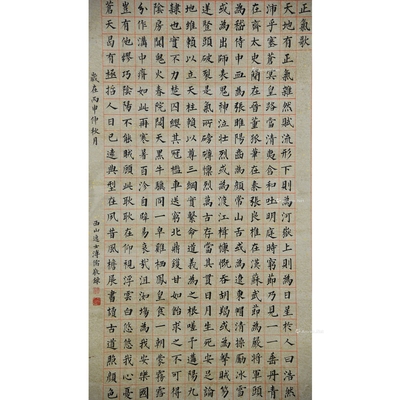 正氣歌
天地有正氣雜然賦流形下則為河嶽上則為日星於人曰浩然
沛乎塞蒼冥皇路當清夷含和吐明庭時窮節乃見一一垂丹青
在齊太史簡在晉董狐筆在秦張良椎在漢蘇武節為嚴將軍頭
為嵇侍中血為張睢陽齒為顏常山舌或為遼東帽清操厲冰雪
或為出師表鬼神泣壯烈或為渡江楫慷慨吞胡羯或為擊賊笏
逆豎頭破裂是氣所磅礴凜烈萬古存當其貫日月生死安足論
地維賴以立天柱賴以尊三綱實繫命道義為之根嗟予遘陽九
隸也實不力楚囚纓其冠車送窮北鼎鑊甘如飴求之不可得
陰房闃鬼火春院閟天黑牛驥同一皁雞棲鳳凰食一朝蒙霧露
分作溝中瘠如此再寒暑百沴自辟易哀哉沮洳場為我安樂國
豈有他繆巧陰陽不能賊顧此耿耿在仰視浮雲白悠悠我心憂
蒼天曷有極哲人日已遠典型在夙昔風檐展書讀古道照顏色
歲在丙申仲秋月
西山逸士溥儒敬錄